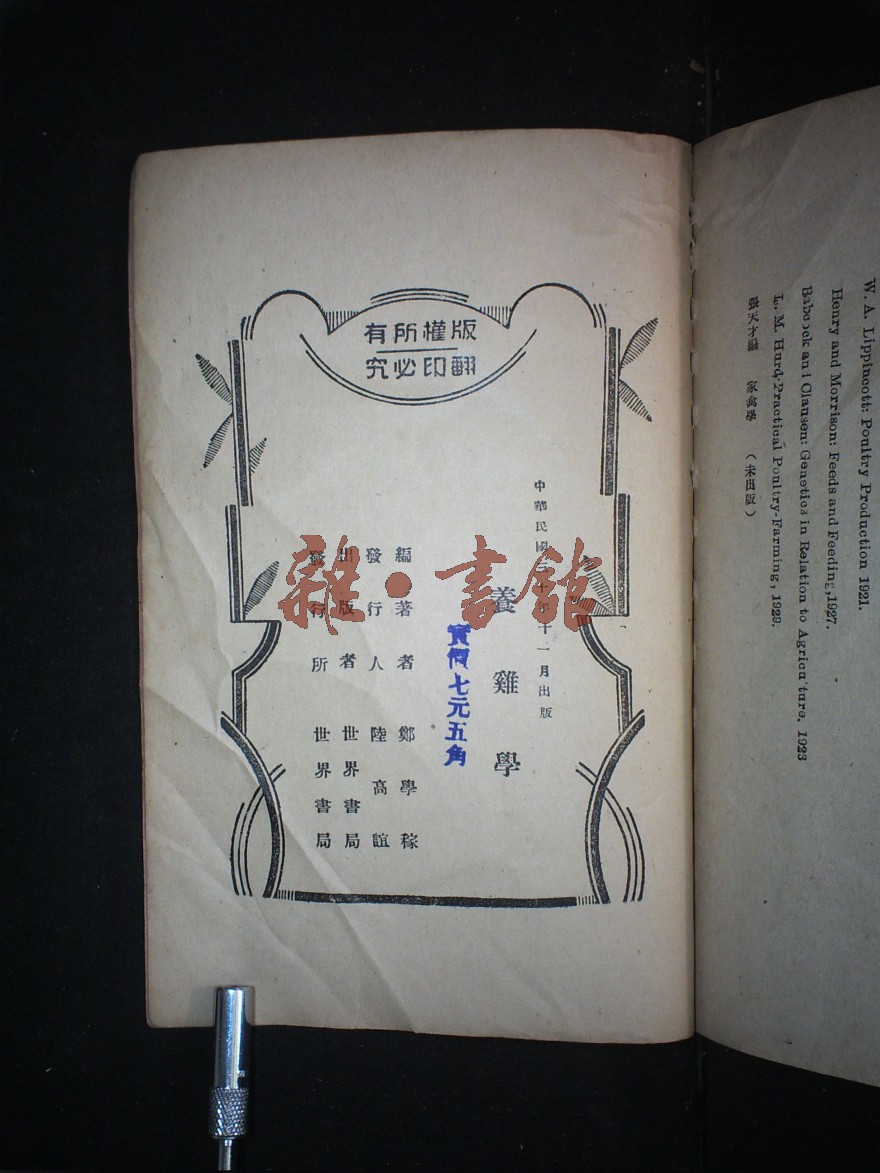 版權所有
翻印必究
中華民國三十年十一月出版
養雞學
實價七元五角
編著者 鄭學稼
發行人 陸高誼
出版者 世界書局
發行所 世界書局
雜·書館
W. A. Lippincott: Poultry Production 1921.
Henry and Morrison: Feeds and Feeding,1927.
Babcock and Clausen: Genetics in Relation to Agriculture. 1923
L. M. Hurd,Practical Poultry-Farming, 1929.
張天才編 家禽學 (未出版)